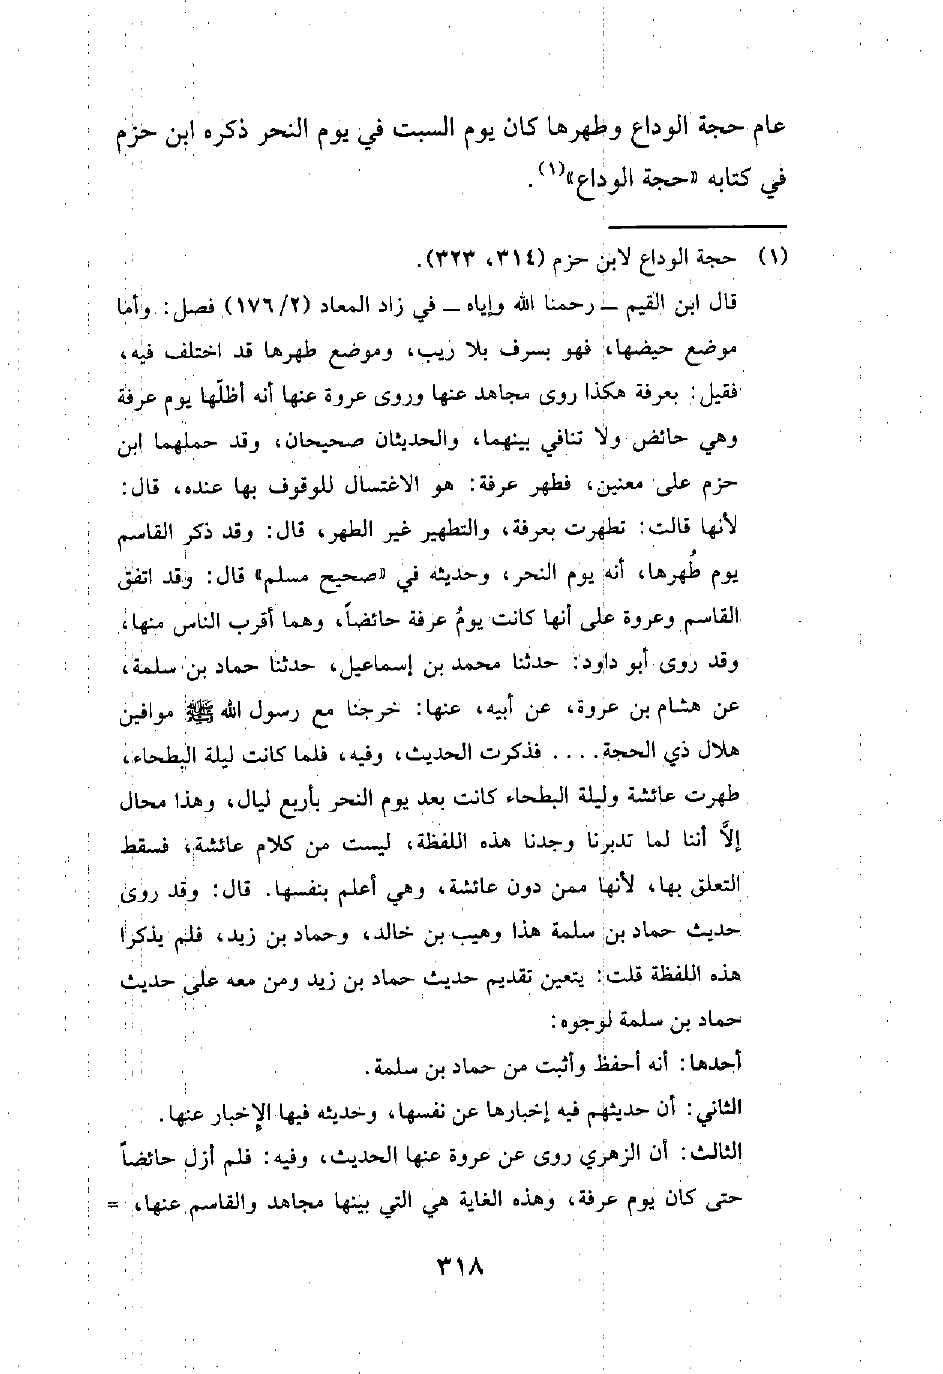 عام حجة الوداع وطهرها كان يوم السبت في يوم النحر ذكره ابن حزم
في كتابه «حجة الوداع»(١).
(١) حجة الوداع لابن حزم (٣١٤، ٣٢٣).
قال ابن القيم ـ رحمنا الله وإياه ـ في زاد المعاد (١٧٦/٢) فصل: وأما
موضع حيضها، فهو بسرف بلا ريب، وموضع طهرها قد اختلف فيه،
فقيل: بعرفة هكذا روى مجاهد عنها وروى عروة عنها أنه أظلّها يوم عرفة
وهي حائض ولا تنافي بينهما، والحديثان صحيحان، وقد حملهما ابن
حزم على معنين، فطهر عرفة: هو الاغتسال للوقوف بها عنده، قال:
لأنها قالت: تطهرت بعرفة، والتطهير غير الطهر، قال: وقد ذكر القاسم
يوم طُهرها، أنه يوم النحر، وحديثه في «صحيح مسلم» قال: وقد اتفق
القاسم وعروة على أنها كانت يومُ عرفة حائضاً، وهما أقرب الناس منها،
وقد روى أبو داود: حدثنا محمد بن إسماعيل، حدثنا حماد بن سلمة،
عن هشام بن عروة، عن أبيه، عنها: خرجنا مع رسول الله ﷺ موافين
هلال ذي الحجة. . . . فذكرت الحديث، وفيه، فلما كانت ليلة البطحاء،
طهرت عائشة وليلة البطحاء كانت بعد يوم النحر بأربع ليال، وهذا محال
إلَّا أننا لما تدبرنا وجدنا هذه اللفظة، ليست من كلام عائشة، فسقط
التعلق بها، لأنها ممن دون عائشة، وهي أعلم بنفسها. قال: وقد روى
حديث حماد بن سلمة هذا وهيب بن خالد، وحماد بن زيد، فلم يذكرا
هذه اللفظة قلت: يتعين تقديم حديث حماد بن زيد ومن معه على حديث
حماد بن سلمة لوجوه:
أحدها: أنه أحفظ وأثبت من حماد بن سلمة.
الثاني: أن حديثهم فيه إخبارها عن نفسها، وحديثه فيها الإخبار عنها.
الثالث: أن الزهري روى عن عروة عنها الحديث، وفيه: فلم أزل حائضاً
حتى كان يوم عرفة، وهذه الغاية هي التي بينها مجاهد والقاسم عنها، =
٣١٨